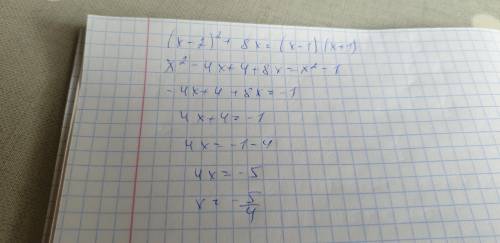 (x-2)² + 8x = (x-1)(x+1)
x² - 4x + 4 + 8x = x² - 1
- 4x + 4 + 8x = -1
4x + 4 = -1
4x = -1 - 4
4x = -5
x = - 5/4